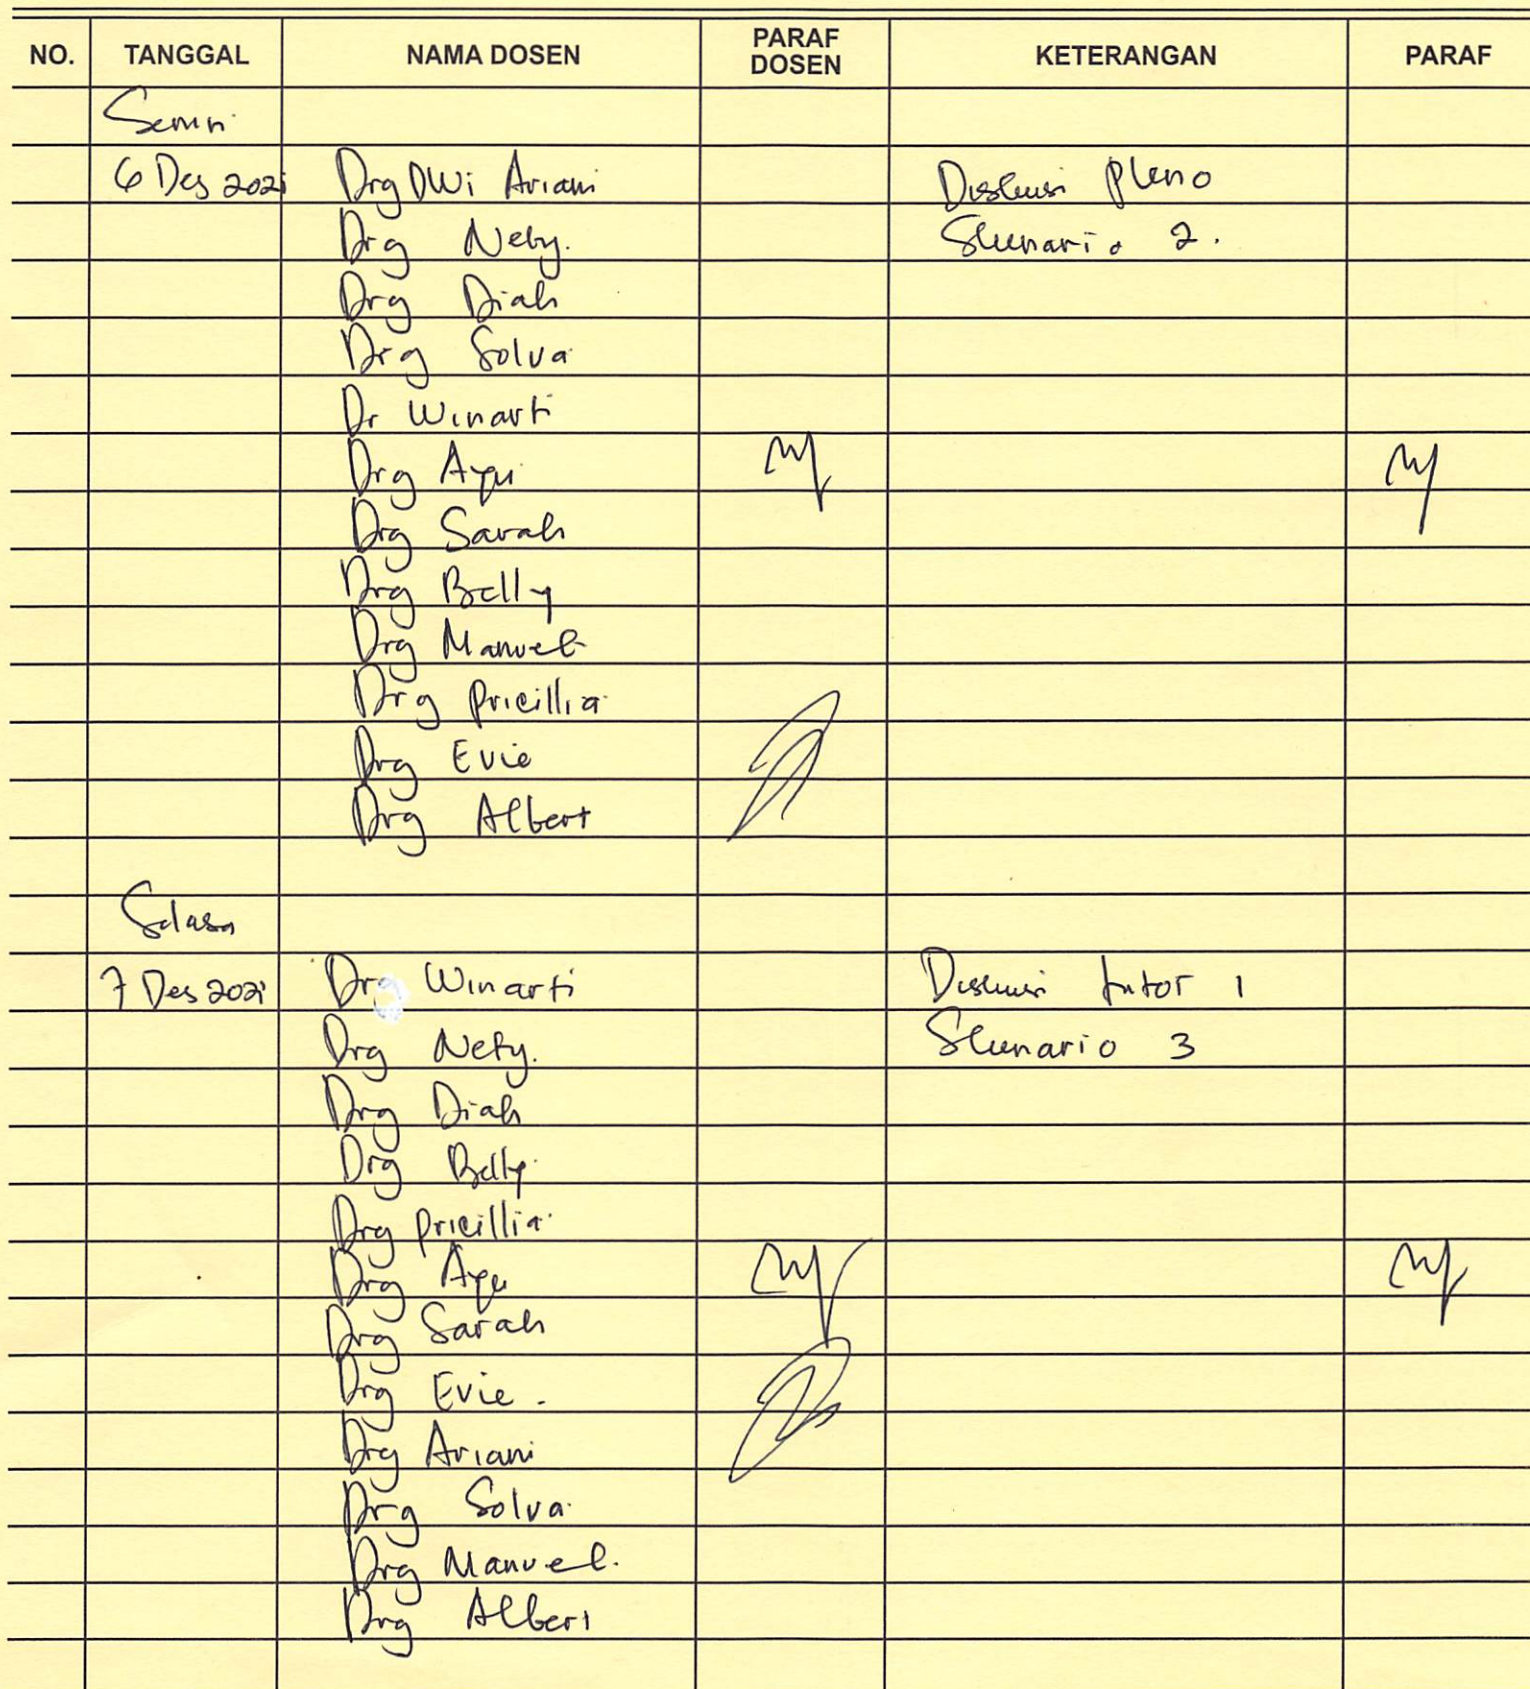 NO. TANGGAL NAMA DOSEN PARAF DOSEN KETERANGAN PARAF
Senin
6 Des 2021 Drg Dwi Ariani Diskusi Pleno
Drg Nety. Skenario 2.
Drg Diah
Drg Solva
Dr Winarti
Drg Ayu
Drg Sarah
Drg Belly
Drg Manuel
Drg Pricillia
Drg Evie
Drg Albert
Selasa
7 Des 2021 Drg Winarti Diskusi tutor 1
Drg Nety. Skenario 3
Drg Diah
Drg Belly
Drg Pricillia
Drg Ayu
Drg Sarah
Drg Evie.
Drg Ariani
Drg Solva
Drg Manuel.
Drg Albert